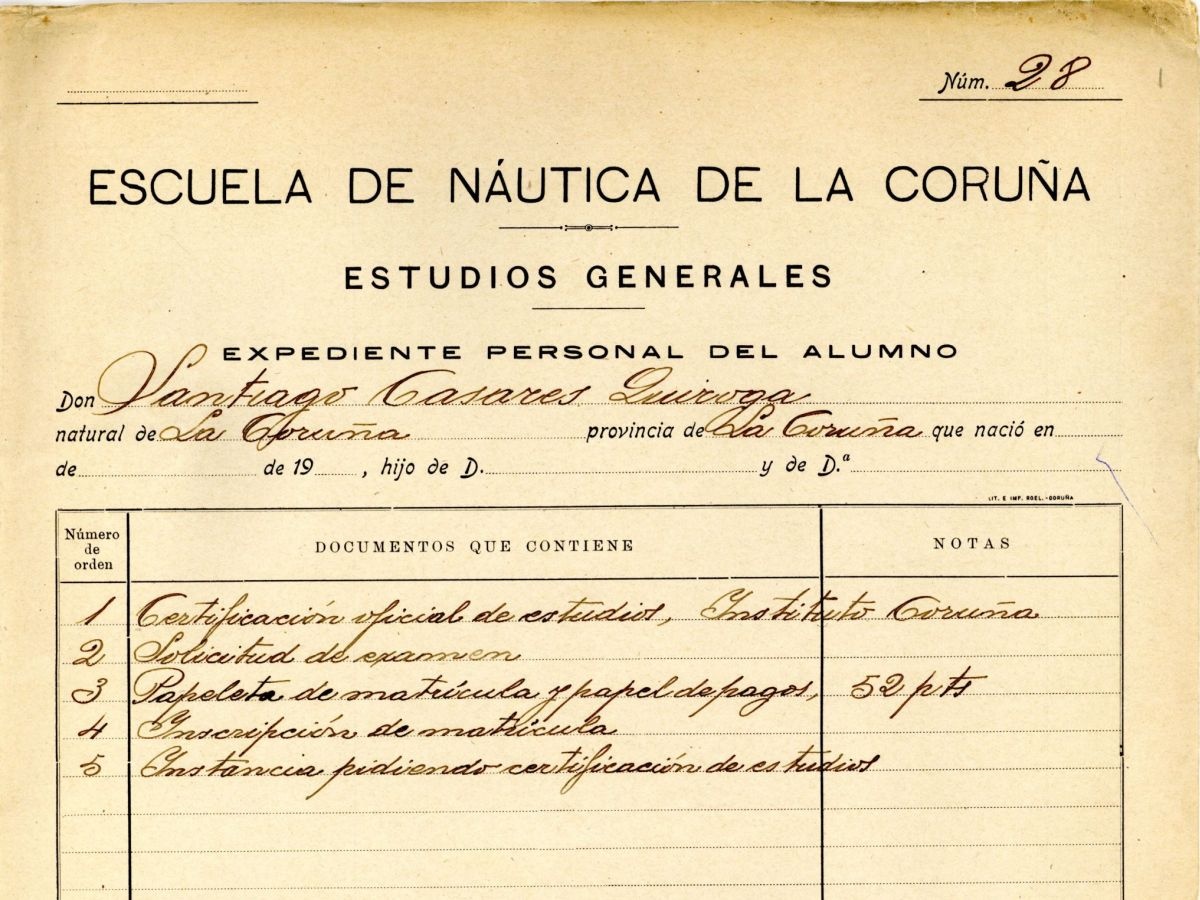 Núm. 28
ESCUELA DE NÁUTICA DE LA CORUÑA
ESTUDIOS GENERALES
EXPEDIENTE PERSONAL DEL ALUMNO
Don Santiago Casares Quiroga
natural de La Coruña provincia de La Coruña que nació en
de de 19 , hijo de D. y de D.ª
LIT. E IMP. ROEL.-CORUÑA
Número de orden DOCUMENTOS QUE CONTIENE NOTAS
1 Certificación oficial de estudios, Instituto Coruña
2 Solicitud de examen
3 Papeleta de matrícula y papel de pagos, 52 pts
4 Inscripción de matrícula
5 Instancia pidiendo certificación de estudios